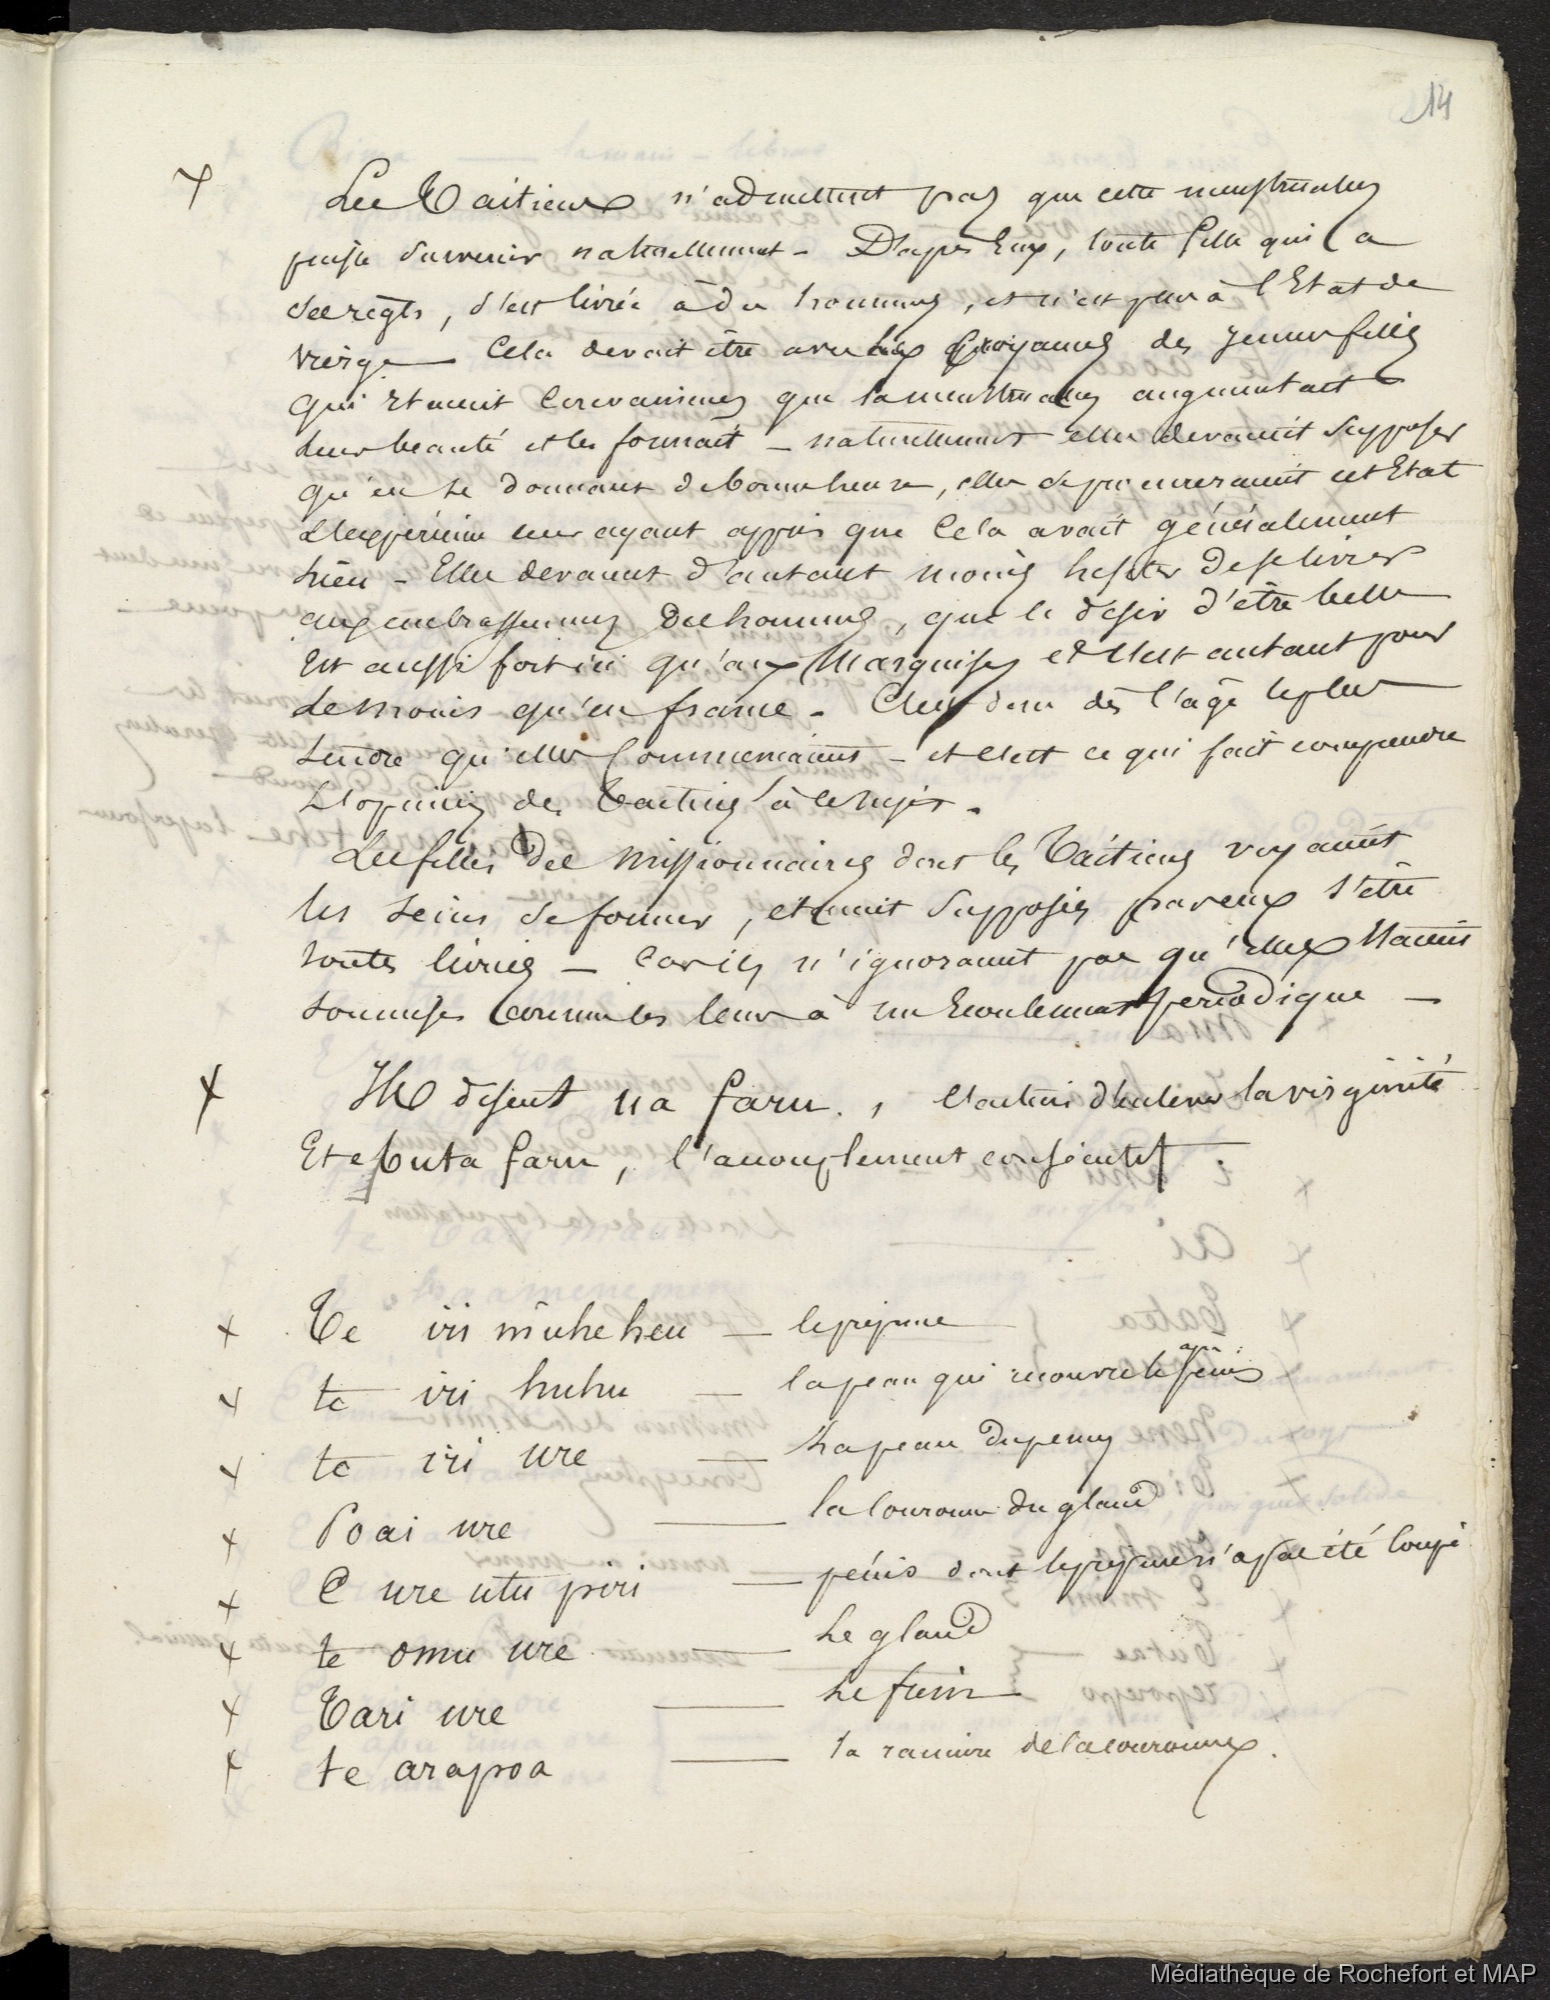 14
+ Les Taitiens n'admettent pas que cette menstruation
puisse survenir naturellement - D'après Eux, toute fille qui a
ses règles, s'est livrée à des hommes, et n'est plus à l'Etat de
vierge - Cela devait être avec les croyances des jeunes filles
qui Etaient convaincues que la menstruation augmentait
leur beauté et les formait - naturellement elles devaient supposer
qu'en se donnant de bonne heure, elles se procureraient cet Etat
L'expérience leur ayant appris que cela avait généralement
lieu - Elles devaient d'autant moins hésiter de se livrer
aux embrassements des hommes, que le désir d'être belle
Est aussi fort ici qu'aux Marquises et c'est autant pour
le moins qu'en france - C'est donc dès l'âge le plus
tendre qu'elles commençaient - et c'est ce qui fait comprendre
L'opinion des Taitiens à ce sujet -
Les filles des Missionnaires dont les Taitiens voyaient
les seins se former, étaient supposées par eux s'être
toutes livrées - Car ils n'ignoraient pas qu'elles Etaient
soumises comme les leurs à un Ecoulement périodique -
+ Ils disent na faru , l'action d'enlever la virginité
Et e tuta faru, l'accouplement consécutif
+ Te iri miheheu - le prépuce
+ te iri huhu - la peau qui recouvre le pénis
+ te iri ure - La peau du penis
+ Poai ure - la couronne du gland
+ E ure utu piri - pénis dont le prépuce n'a pas été coupé
+ te omu ure - Le gland
+ Tari ure - Le frein
+ te arapoa - la rainure de la couronne.
Médiathèque de Rochefort et MAP